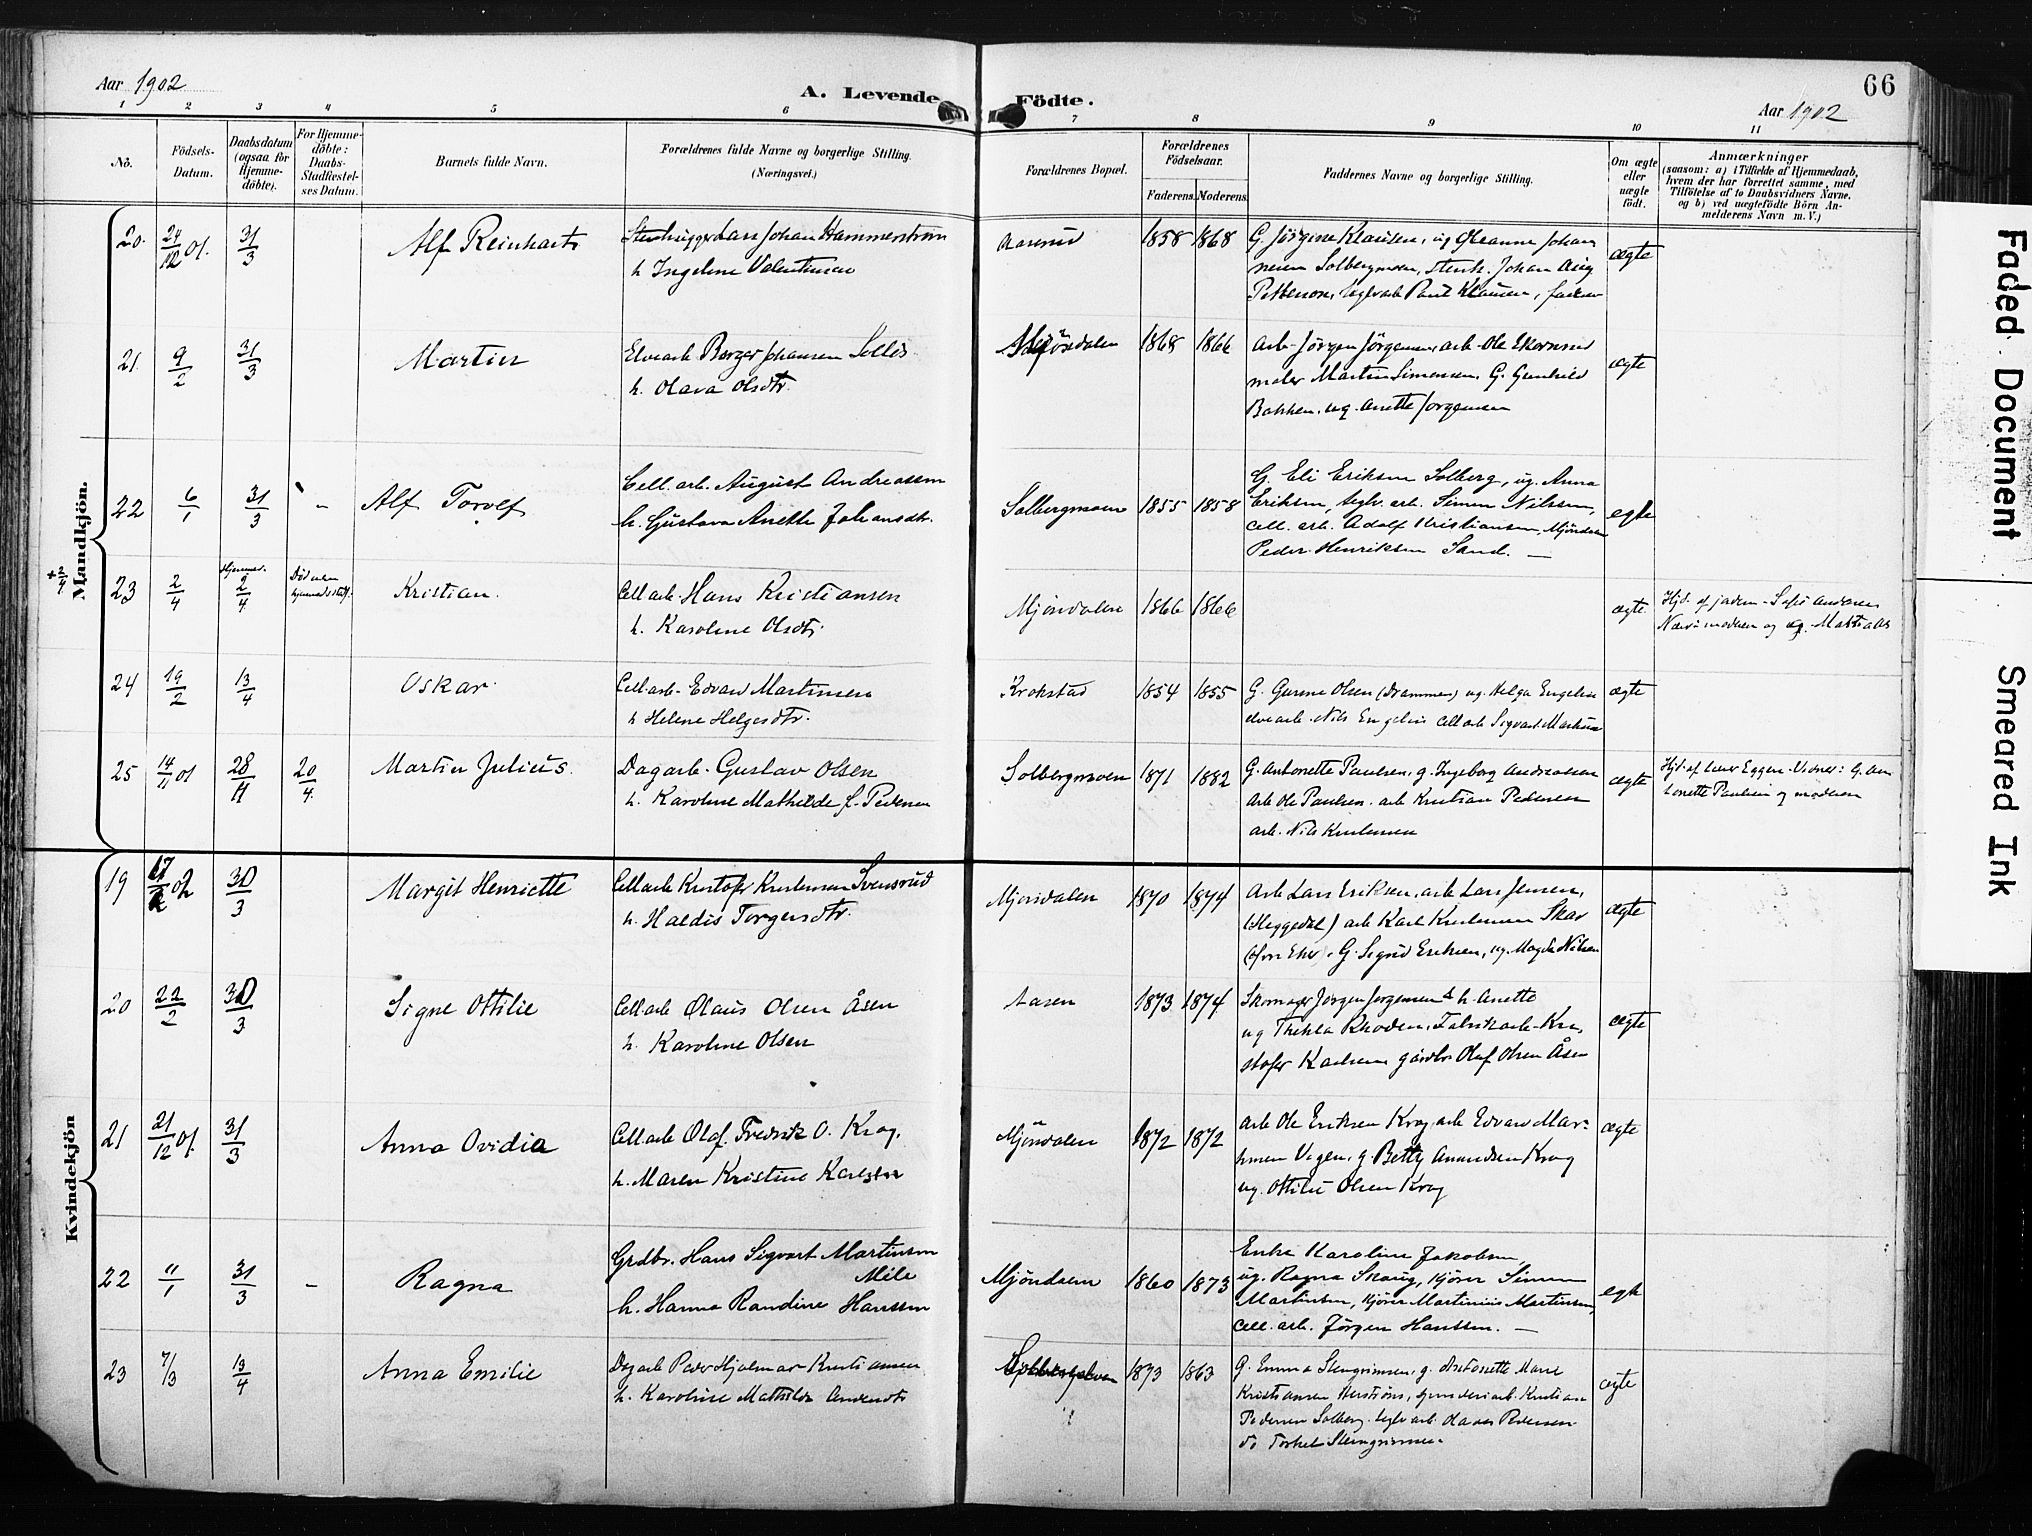 Aar 1902
A. Levende Födte.
66
Aar 1902
1 2 3 4 5 6 7 8 9 10 11
No.
Födsels-
Datum.
Daabsdatum
(ogsaa for
Hjemme-
döbte).
For Hjemme-
döbte:
Daabs-
Stadfæstel-
ses Datum.
Barnets fulde Navn.
Forældrenes fulde Navne og borgerlige Stilling.
(Næringsvei.)
Forældrenes Bopæl.
Forældrenes
Födselsaar.
Faderens. Moderens.
Faddernes Navne og borgerlige Stilling.
Om ægte
eller
uægte
födt.
Anmærkninger
(saasom: a) i Tilfælde af Hjemmedaab,
hvem der har forrettet samme, med
Tilföielse af to Daabsvidners Navne.
og b) ved uægtefödte Börn An-
melderens Navn m. V.)
Mandkjön.
20. 24/12 01. 31/3 Alf Reinhart Stenhugger Lars Johan Hammerström Aaserud 1858 1868 G. Jörgine Klausen, ug Oleanne Johan ægte
h Ingeline Valentinsen
nesen Solbergmoen, stenh. Johan Aug
Petterson, teglvarb Paul Klausen, faderen
21. 9/2 31/3 Martin Elvearb Borger Johansen Mjöndalen 1868 1866 Arb Jörgen Jörgensen, arb Ole Ekornrud ægte
h. Olava Olsdtr.
maler Martin Simensen, G. Gunhild
Bakken, ug. Anette Jorgensen
22 6/1 31/3 - Alf Torolf Cell. arb. August Andreassen Solbergmoen 1855 1858 G. Eli Eriksen Solberg, ug. Anna egte
h. Gustava Anette Johansdtr.
Eriksen, teglv. arb. Simen Nilssen,
cell. arb. Adolf Kristiansen, Mjöndalen
Peder Henriksen Sand. —
+2/4
23 2/4 Hjemmed. 2/4 Död uden Kristian. Cellarb. Hans Kristiansen Mjöndalen 1866 1866 ægte Hjd. af jordm. Sofie Andersen
h. Karoline Olsdtr.
Nærv: moderen og
24 19/2 13/4 Oskar Cellarb. Edvard Martinsen Krokstad 1854 1855 G. Gurine Olsen (Drammen) ug. Helga Engelien ægte
h Helene Helgesdtr.
elvearb. Nils Engelien cellarb Sigvart Martinsen
25 14/11 01 28/11 20/4 Martin Julius. Dagarb. Gustav Olsen Solbergmoen 1871 1882 G. Antonette Paulsen, g. Ingeborg Andreassen ægte Hjd. af Eggen. Vidner: G. An
h. Karoline Mathilde f. Pedersen
arb Ole Paulsen. arb Kristian Pedersen
tonette Paulsen og moderen
arb. Nils Kristensen
Kvindekjön
19 17/2 02 30/3 Margit Henriette Cellarb Kristofer Kristensen Svensrud Mjöndalen 1870 1874 Arb Lars Eriksen, arb Lars Jensen, ægte
h. Haldis Torgersdtr.
(Heggedal) arb Karl Kristensen Skar
(Övre Eker). G. Sigrid Eriksen, ug. Magda Nilsen
20 22/2 30/3 Signe Ottilie Cellarb Olaus Olsen Åsen Aasen 1873 1874 Skomager Jörgen Jorgensen & h. Anette ægte
h. Karoline Olsen
ug Thekla Rhoden, Fabrikarb. Kri
stofer Karlsen, gårdbr Olaf Olsen Åsen
21 21/12 01. 31/3 Anna Ovidia Cellarb Olaf Fredrik O. Krog. Mjöndalen 1872 1872 arb Ole Eriksen Krog, arb Edvard Mar- ægte
h. Maren Kristine Karlsdtr
tinsen Vegen, g. Betty Amundsen Krog
ug. Ottilie Olsen Krog
22 11/1 31/3 - Ragna Grdbr. Hans Sigvart Martinsen Mile Mjöndalen 1860 1873 Enke Karoline Jakobsen, egte
h. Hanna Randine Hanssen
ug. Ragna Skaug, kjörer Simen
Martinsen, kjörer Martinius Martinsen,
cell. arb. Jörgen Hanssen. —
23 7/3 13/4 Anna Emilie Dagarb Peder Hjalmar Kristiansen 1873 1863 G. Emma Stengrimsen, g. Antonette Marie ægte
h. Karoline Mathilde
Kristiansen
Pedersen Solberg. teglv arb. Olaves Pedersen
do Torkel Stengrimsen.
Faded Document
Smeared Ink